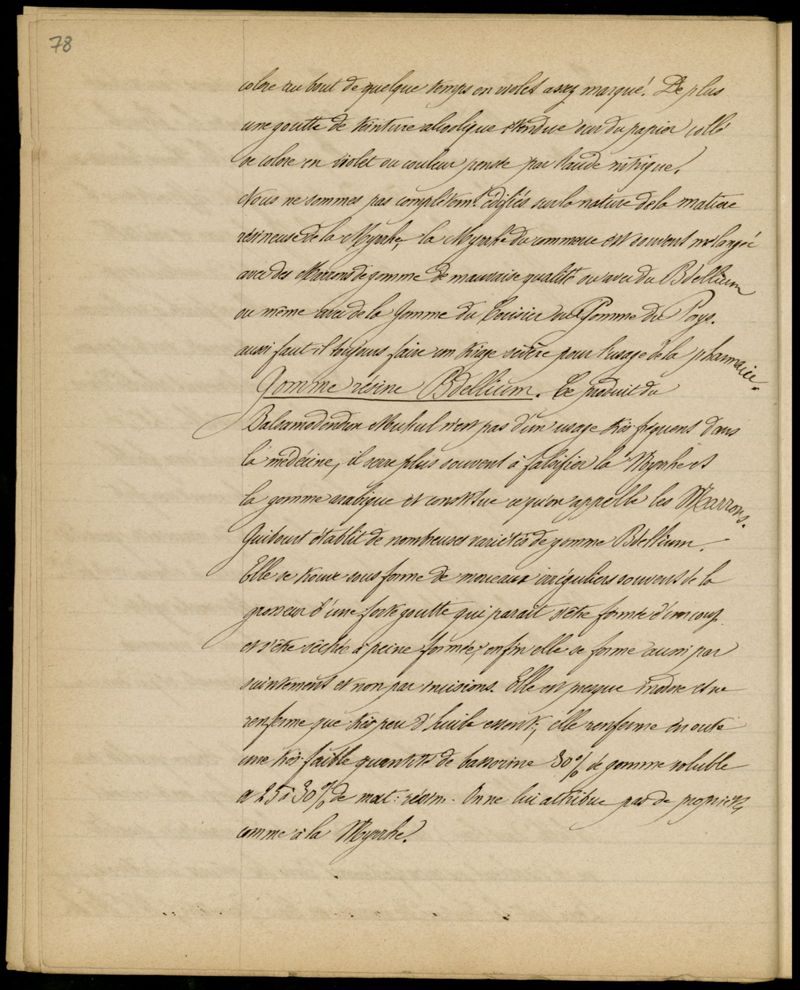 78
colore au bout de quelque temps en violet assez marqué. De plus
une goutte de teinture alcoolique étendue sur du papier collé
se colore en violet ou couleur pensée par l'acide nitrique.
Nous ne sommes pas complètemt édifiés sur la nature de la matière
résineuse de la Myrrhe, la Myrrhe du commerce est souvent mélangée
avec des Marrons de gomme de mauvaise qualité ou avec du Bdellium
ou même avec de la Gomme du Cerisier ou Gomme du Pays.
aussi faut-il toujours faire un triage sévère pour l'usage de la pharmacie.
Gomme résine Bdellium. Ce produit du
Balsamodendron Mukul n'est pas d'un usage très fréquent dans
la médecine, il sert plus souvent à falsifier la Myrrhe et
la gomme arabique et constitue ce qu'on appelle les Marrons.
Guibourt établit de nombreuses variétés de gomme Bdellium.
Elle se trouve sous forme de morceaux irréguliers souvent de la
grosseur d'une forte goutte qui parait s'être formée d'un coup
et s'être séchée à peine formée, enfin elle se forme aussi par
suintement et non par incisions. Elle est presque inodore et ne
renferme que très peu d'huile essentle, elle renferme en outre
une très faible quantité de bassorine 30% de gomme soluble
et 25 à 30% de mat: résin. On ne lui attribue pas de propriétés
comme à la Myrrhe.